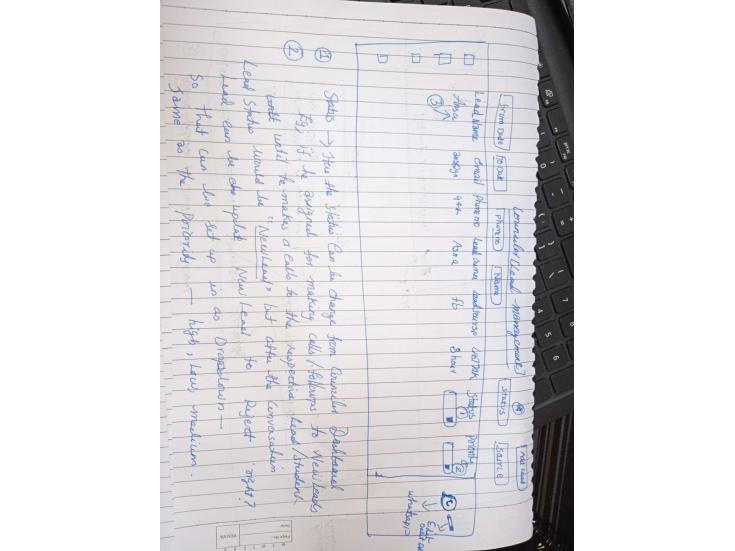 Counsilor (Lead management)
Add Lead
From Date To Date Phone no Name Status Source
Lead Name email Phone no Lead owner Lead source Status Priority
Asna 944 Asna fb 8 hour
③ ① ②
Edit
whatsapp
① Status → Here the Status Can be change from Counsilor Dashboard
Eg, if he assigned for making calls/followups to New Leads.
until he makes a calls to the respective Lead/student
Lead Status would be "New Lead" but after the Convasation
Lead can be update New Lead to Reject right?
So that can be set up in as Dropdown —
② Same as the Priority — high, Low, medium.
Page No.
Date
YOUVA